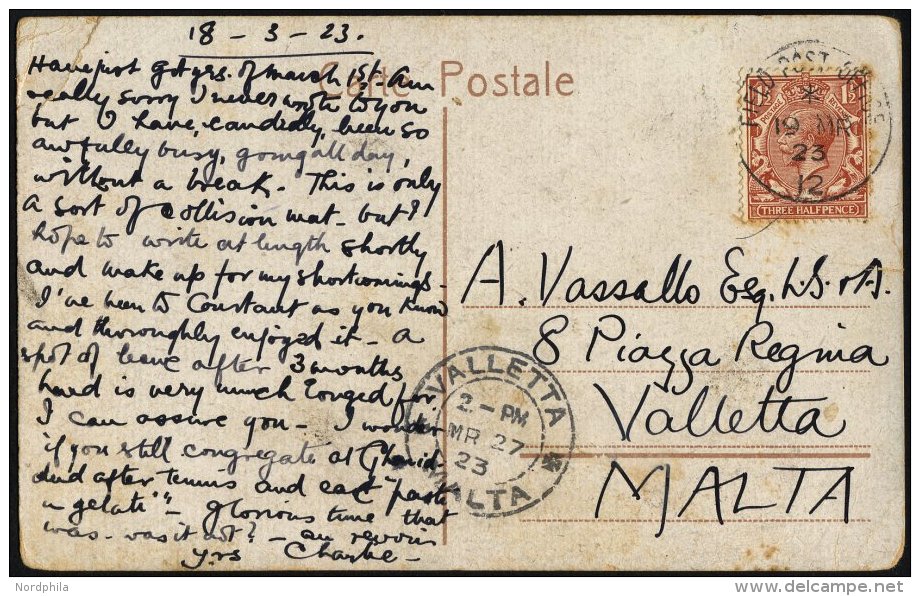 18 - 3 - 23.
Have just got yrs. of March 1st. Am
really sorry I never wrote to you
but I have, candidly, been so
awfully busy, going all day,
without a break. This is only
a sort of collision mat - but I
hope to write at length shortly
and make up for my shortcomings -
I've been to Constant as you know
and thoroughly enjoyed it - a
spot of leave after 3 months
hard is very much longed for
I can assure you - I wonder
if you still congregate at
after tennis and eat "paste
gelate" - glorious time that
was - was it not? - au revoir
yrs Charlie -
Carte Postale
FIELD POST OFFICE
*
19 MR
23
12
POSTAGE REVENUE
1½ 1½
THREE HALFPENCE
A. Vassallo Esq. L.S. &A.
8 Piazza Regina
Valletta
MALTA
VALLETTA
2 - PM
MR 27
23
MALTA
Nordphila
www.delcampe.net